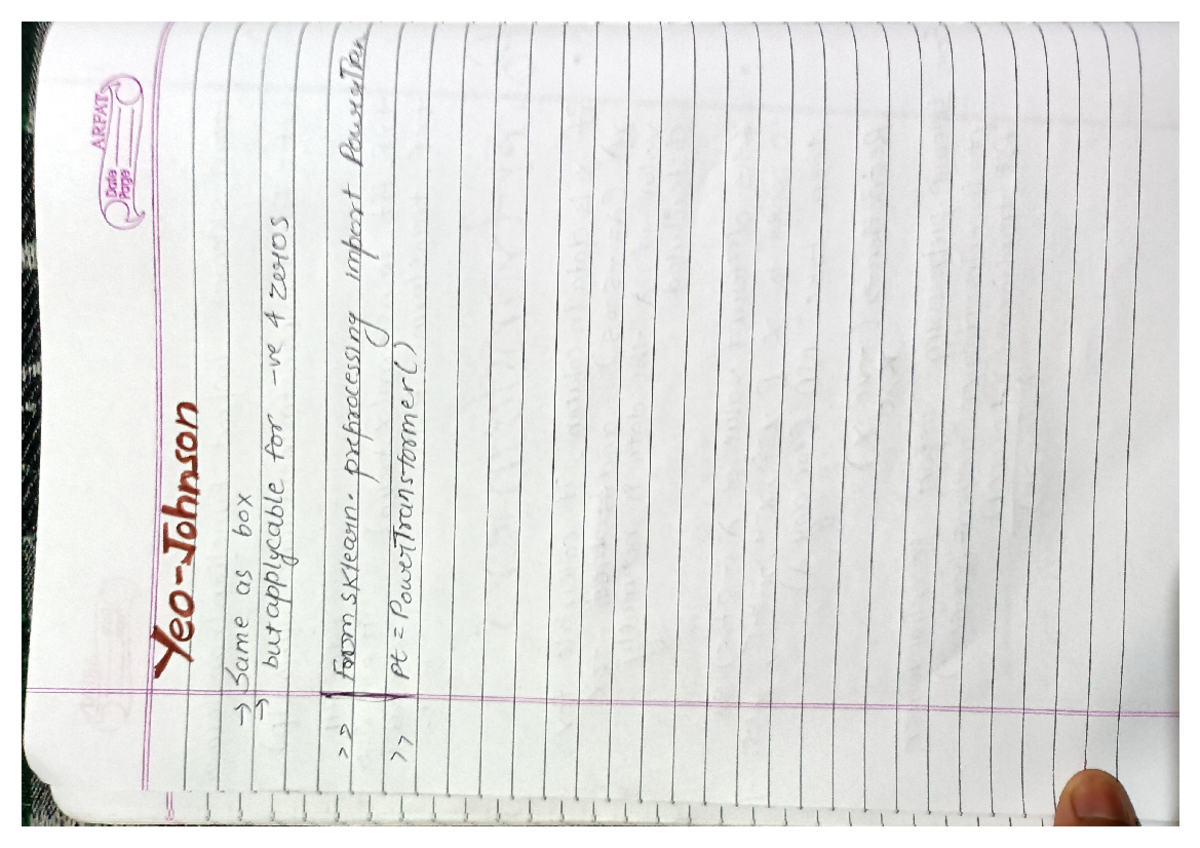 ARPAT
Date
Page
Yeo-Johnson
→ Same as box
→ but applycable for -ve & zeros
>> From sklearn. preprocessing import PowerTran
>> pt = PowerTransformer()